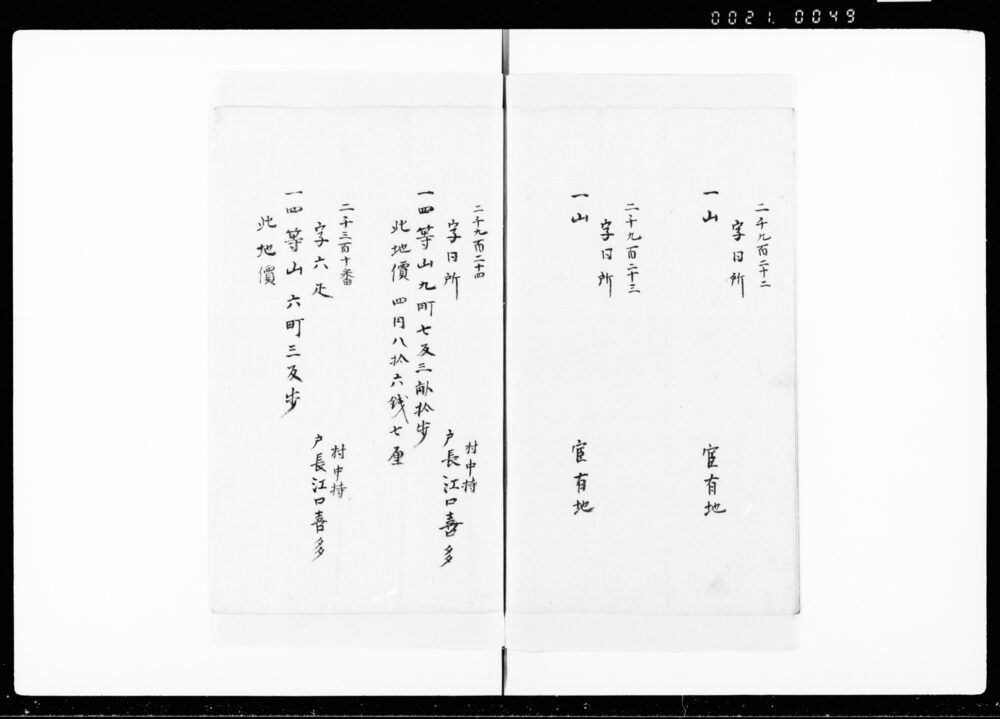 0021. 0049
二千九百二十二
字日所
一山
官有地
二千九百二十三
字日所
一山
官有地
二千九百二十四
字日所
村中持
戸長江口喜多
一四等山九町七反三畝拾歩
此地價四円八拾六銭七厘
二千三百十番
字六疋
村中持
戸長江口喜多
一四等山六町三反歩
此地價